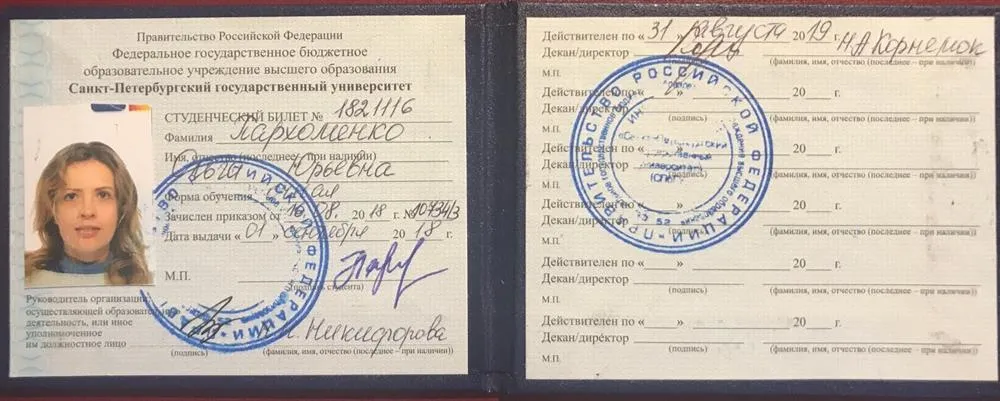 Правительство Российской Федерации
Федеральное государственное бюджетное
образовательное учреждение высшего образования
Санкт-Петербургский государственный университет
СТУДЕНЧЕСКИЙ БИЛЕТ № 1821116
Фамилия Пархоменко
Имя, отчество (последнее – при наличии)
Юрьевна
Форма обучения
Зачислен приказом от 08. 2018 г. № 10734/3
Дата выдачи «01» сентября 2018 г.
М.П.
(подпись студента)
Руководитель организации,
осуществляющей образовательную
деятельность, или иное
уполномоченное
им должностное лицо
Никифорова
(подпись) (фамилия, имя, отчество (последнее – при наличии))
Действителен по «31» августа 2019 г.
Декан/директор Н.А Корнемюк
(подпись) (фамилия, имя, отчество (последнее – при наличии))
М.П.
Действителен по « » 20 г.
Декан/директор
(подпись) (фамилия, имя, отчество (последнее – при наличии))
М.П.
Действителен по « » 20 г.
Декан/директор
(фамилия, имя, отчество (последнее – при наличии))
М.П.
Действителен по « » 20 г.
Декан/директор
(подпись) (фамилия, имя, отчество (последнее – при наличии))
М.П.
Действителен по « » 20 г.
Декан/директор
(подпись) (фамилия, имя, отчество (последнее – при наличии))
М.П.
Действителен по « » 20 г.
Декан/директор
(подпись) (фамилия, имя, отчество (последнее – при наличии))
М.П.
ПРАВИТЕЛЬСТВО РОССИЙСКОЙ ФЕДЕРАЦИИ